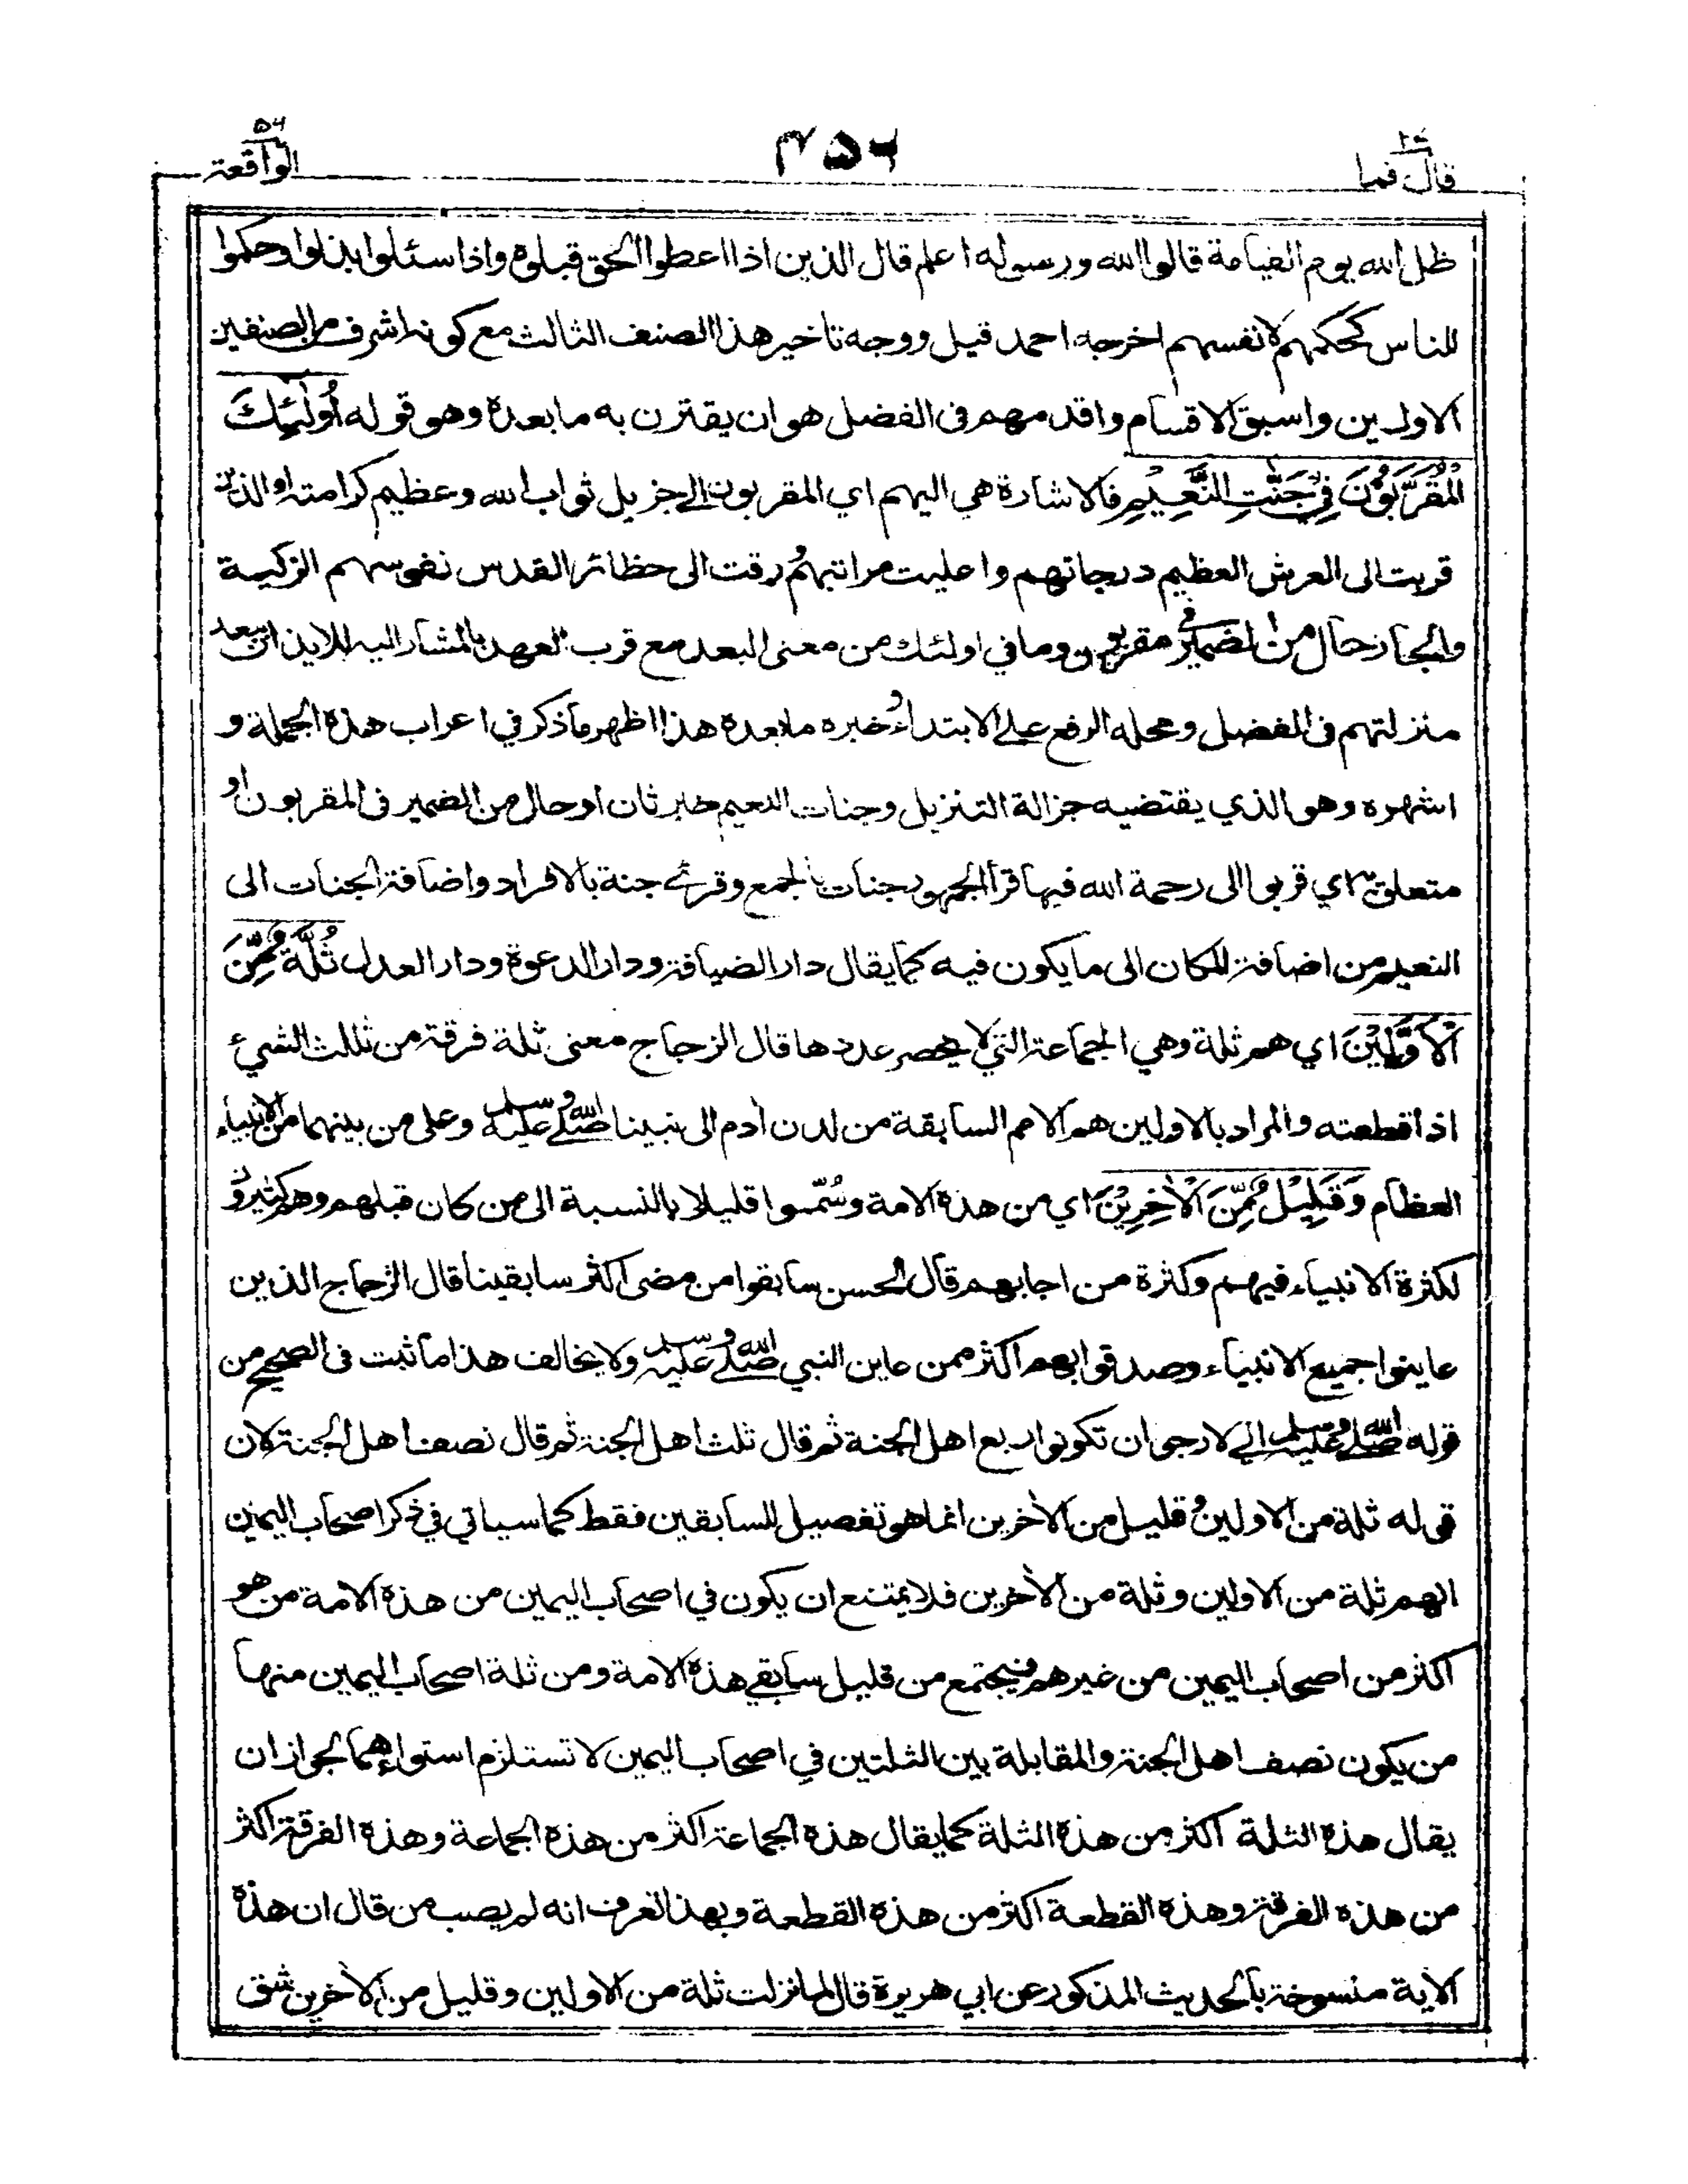 قال فما ٢٧
٤٥٦
الواقعة ٥٦
ظل الله يوم القيامة قالوا الله ورسوله اعلم قال الذين اذا اعطوا الحق قبلوه واذا سئلوا بذلوا وحكموا
للناس كحكمهم لانفسهم اخرجه احمد قيل ووجه تاخير هذا الصنف الثالث مع كونه اشرف من الصنفين
الاولين واسبق الاقسام واقدمهم في الفضل هو ان يقترن به ما بعده وهو قوله أُولٰئِكَ
الْمُقَرَّبُوْنَ فِيْ جَنّٰتِ النَّعِيْمِ فالاشارة هي اليهم اي المقربون الى جزيل ثواب الله وعظيم كرامته او الذين
قربت الى العرش العظيم درجاتهم واعليت مراتبهم ورقت الى حظائر القدس نفوسهم الزكية
والجار حال من الضمير في مقربون وما في اولئك من معنى البعد مع قرب العهد بالمشار اليه للايذان ببعد
منزلتهم في الفضل ومحله الرفع على الابتداء وخبره ما بعده هذا اظهر ما ذكر في اعراب هذه الجملة و
اشهره وهو الذي يقتضيه جزالة التنزيل وجنات النعيم خبر ثان او حال من الضمير في المقربون او
متعلق به اي قربوا الى رحمة الله فيها قرأ الجمهور جنات بالجمع وقرئ جنة بالافراد واضافة الجنات الى
النعيم من اضافة المكان الى ما يكون فيه كما يقال دار الضيافة ودار الدعوة ودار العدل ثُلَّةٌ مِّنَ
الْاَوَّلِيْنَ اي هم ثلة وهي الجماعة التي لا يحصر عددها قال الزجاج معنى ثلة فرقة من ثللت الشيئ
اذا قطعته والمراد بالاولين هم الامم السابقة من لدن أدم الى نبينا صلى الله عليه وسلم وعلى من بينهما من الانبياء
العظام وَقَلِيْلٌ مِّنَ الْاٰخِرِيْنَ اي من هذه الامة وسُمّوا قليلا بالنسبة الى من كان قبلهم وهم كثيرون
لكثرة الانبياء فيهم وكثرة من اجابهم قال الحسن سابقوا من مضى اكثر سابقينا قال الزجاج الذين
عاينوا جميع الانبياء وصدقوا بهم اكثر ممن عاين النبي صلى الله عليه وسلم ولا يخالف هذا ما ثبت في الصحيح من
قوله صلى الله عليه وسلم اني لارجو ان تكونوا ربع اهل الجنة ثم قال ثلث اهل الجنة ثم قال نصف اهل الجنة لان
قوله ثلة من الاولين وقليل من الأخرين انما هو تفصيل للسابقين فقط كما سياتي في ذكر اصحاب اليمين
انهم ثلة من الاولين وثلة من الأخرين فلا يمتنع ان يكون في اصحاب اليمين من هذه الامة من هو
اكثر من اصحاب اليمين من غيرهم فيجتمع من قليل سابقي هذه الامة ومن ثلة اصحاب اليمين منها
من يكون نصف اهل الجنة والمقابلة بين الثلتين في اصحاب اليمين لا تستلزم استواءهما لجواز ان
يقال هذه الثلة اكثر من هذه الثلة كما يقال هذه الجماعة اكثر من هذه الجماعة وهذه الفرقة اكثر
من هذه الفرقة وهذه القطعة اكثر من هذه القطعة وبهذا تعرف انه لم يصب من قال ان هذه
الأية منسوخة بالحديث المذكور عن ابي هريرة قال لما نزلت ثلة من الاولين وقليل من الأخرين شق